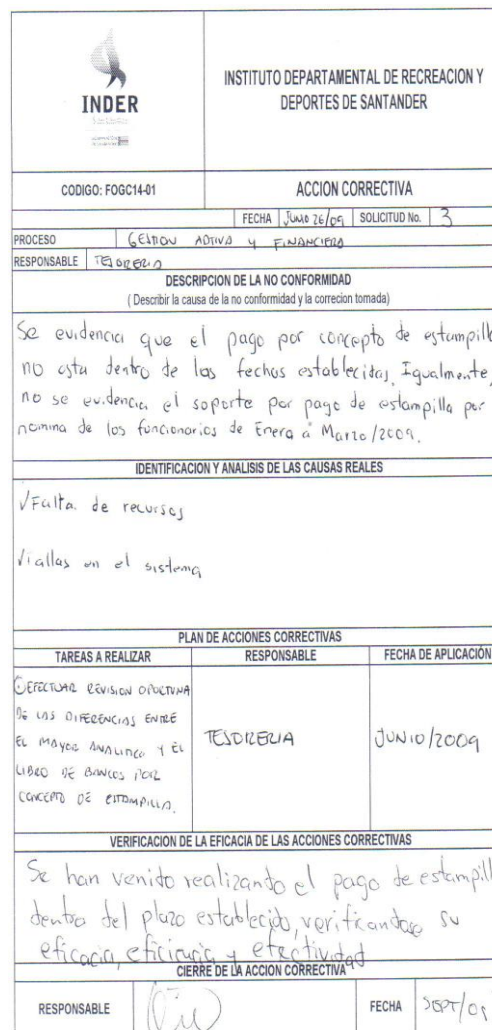 INDER
INSTITUTO DEPARTAMENTAL DE RECREACION Y
DEPORTES DE SANTANDER
CODIGO: FOGC14-01
ACCION CORRECTIVA
FECHA JUNIO 26/09 SOLICITUD No. 3
PROCESO GESTION ADTIVA Y FINANCIERA
RESPONSABLE TESORERIA
DESCRIPCION DE LA NO CONFORMIDAD
( Describir la causa de la no conformidad y la correcion tomada)
Se evidencia que el pago por concepto de estampilla
no esta dentro de las fechas establecidas, Igualmente,
no se evidencia el soporte por pago de estampilla por
nomina de los funcionarios de Enero a Marzo/2009.
IDENTIFICACION Y ANALISIS DE LAS CAUSAS REALES
√Falta de recursos
√iallas en el sistema
PLAN DE ACCIONES CORRECTIVAS
TAREAS A REALIZAR
RESPONSABLE
FECHA DE APLICACIÓN
EFECTUAR REVISION OPORTUNA
DE LAS DIFERENCIAS ENTRE
EL MAYOR ANALITICO Y EL
LIBRO DE BANCOS POR
CONCEPTO DE ESTAMPILLA.
TESORERIA
JUNIO/2009
VERIFICACION DE LA EFICACIA DE LAS ACCIONES CORRECTIVAS
Se han venido realizando el pago de estampill
dentro del plazo establecido, verificandose su
eficacia, eficiencia y efectividad
CIERRE DE LA ACCION CORRECTIVA
RESPONSABLE
FECHA SEPT/09